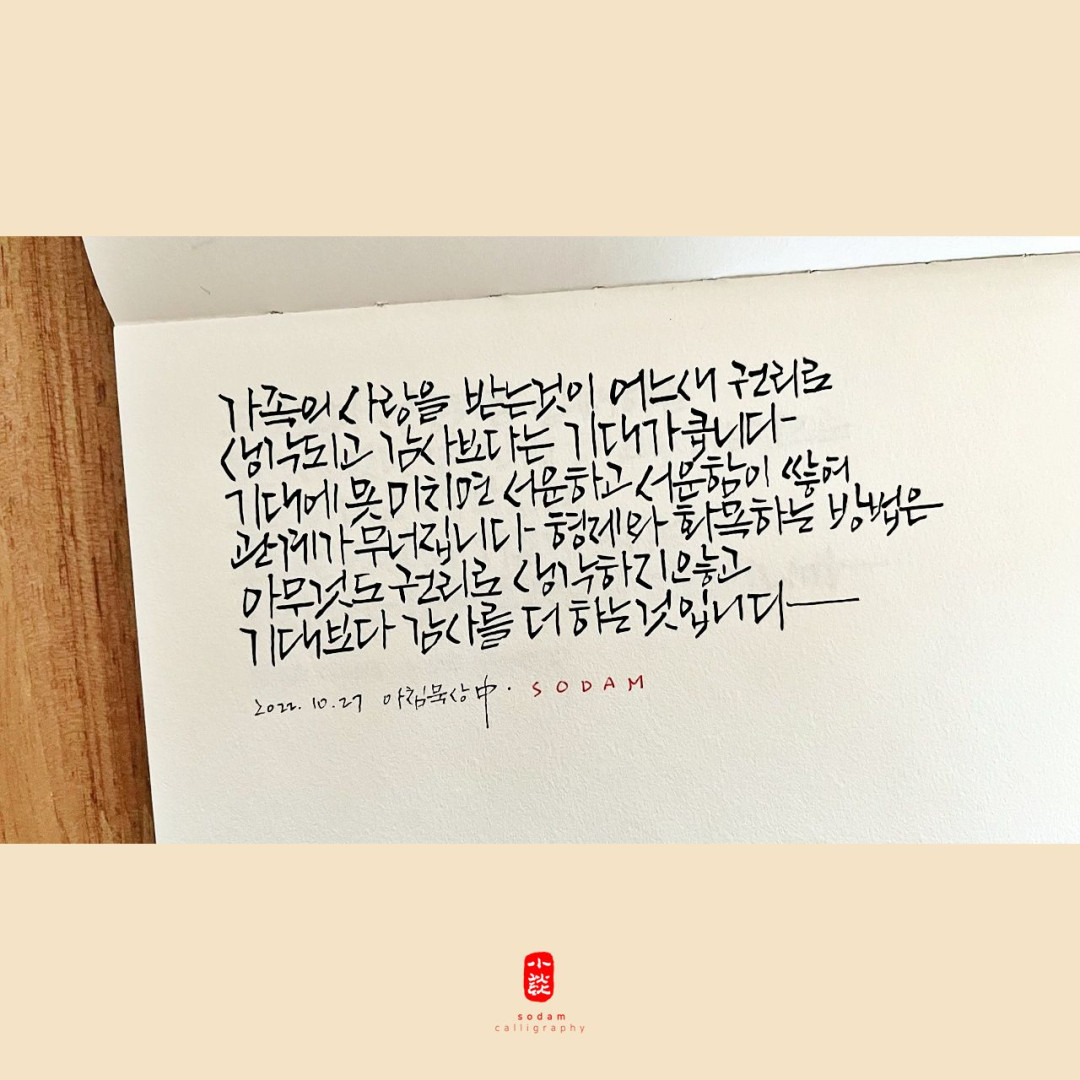 가족의 사랑을 받는것이 어느새 권리로
생각되고 감사보다는 기대가 큽니다-
기대에 못 미치면 서운하고 서운함이 쌓여
관계가 무너집니다- 형제와 화목하는 방법은
아무것도 권리로 생각하지않고
기대보다 감사를 더 하는것입니다—
2022. 10. 27 아침묵상中. SODAM
小談
sodam
calligraphy